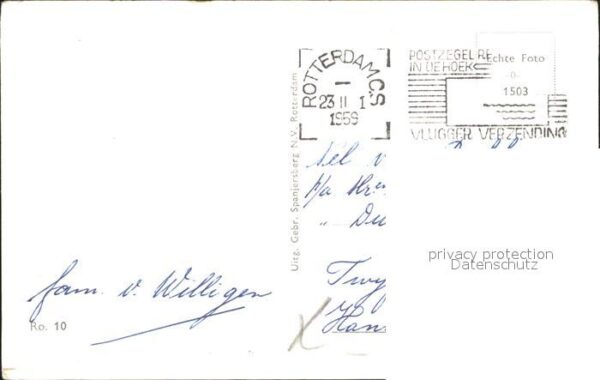 ROTTERDAM C.S
23 II 1
1959
POSTZEGEL RE
IN DE HOEK
Echte Foto
-0-
1503
VLUGGER VERZENDING
Uitg. Gebr. Spanjersberg N.V., Rotterdam
Nel v
p/a
" Du
Twy
Han
privacy protection
Datenschutz
fam. v. Willigen
Ro. 10